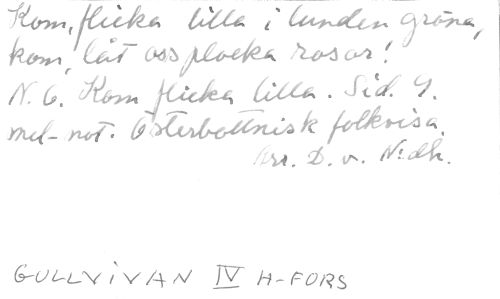 Kom, flicka lilla i lunden gröna,
kom, låt oss plocka rosor!
N. 6. Kom flicka lilla. Sid. 4.
mel-not. Österbottnisk folkvisa.
Arr. D. v.
GULLVIVAN IV H-FORS